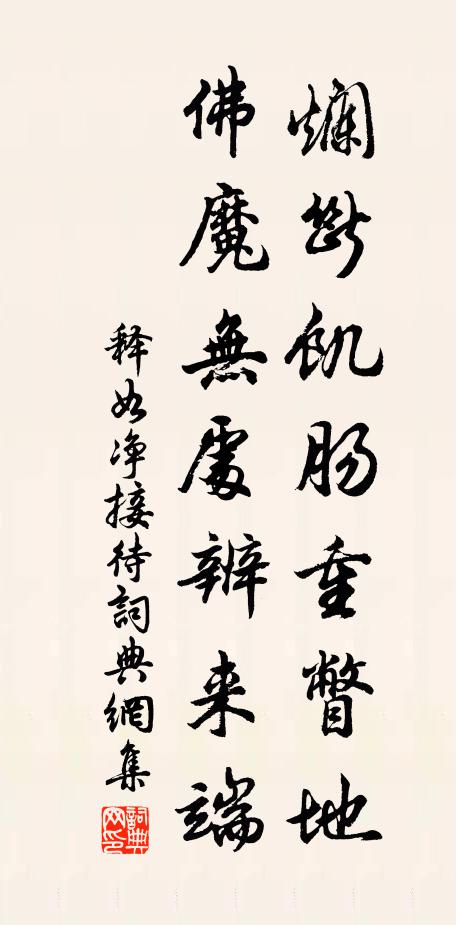 爛斷飢腸重瞥地
佛魔無處辨来端
释如净接待詞典網集
詞典網印